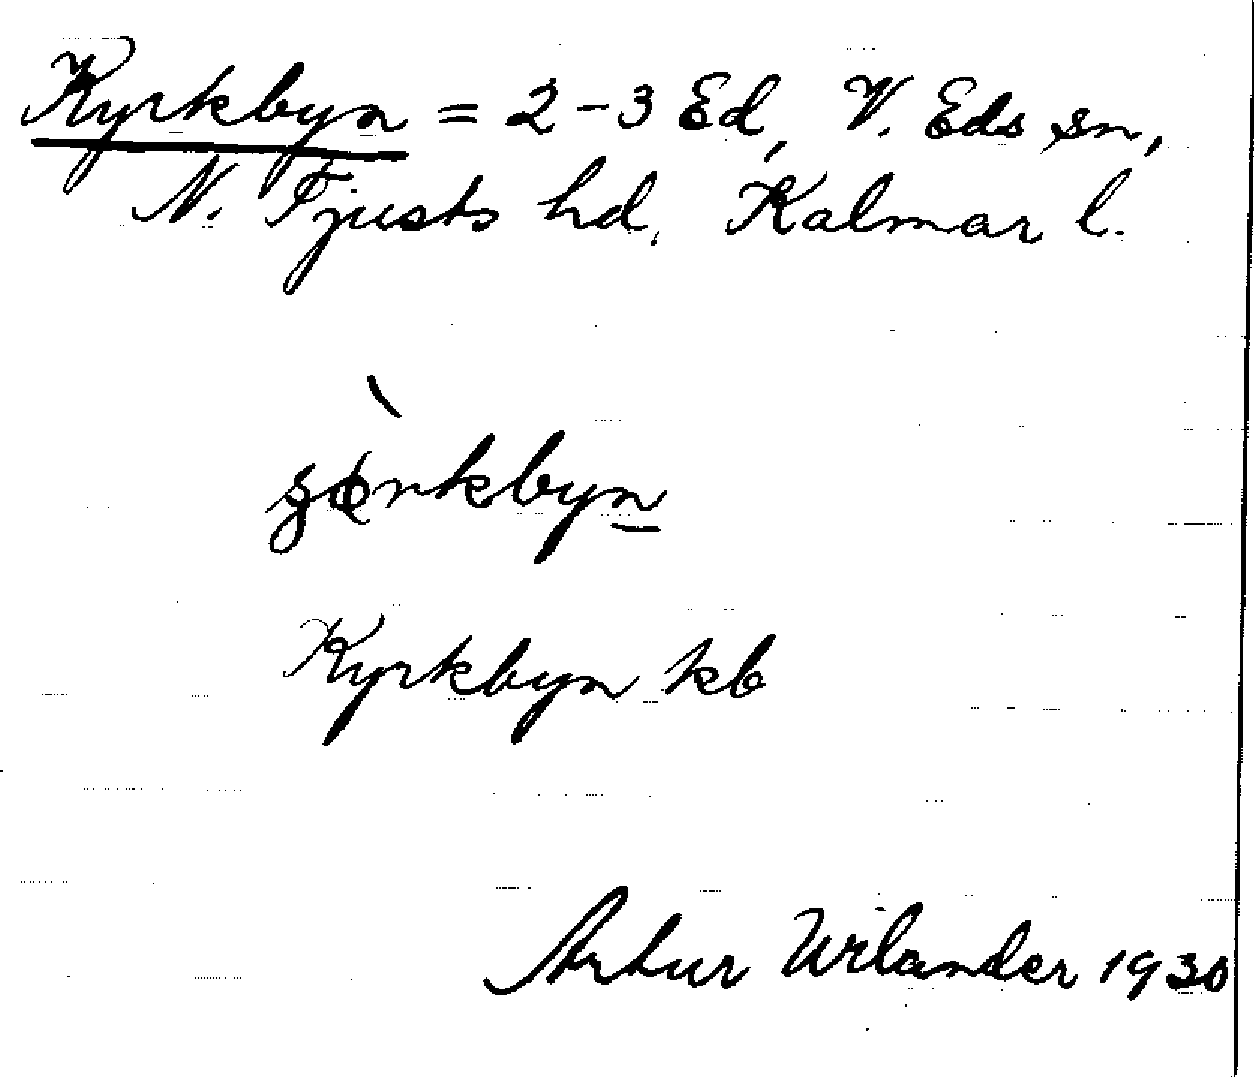 Kyrkbyn = 2-3 Ed, V. Eds sn,
N. Tjusts hd, Kalmar l.
Kyrkbyn kb
Artur Wilander 1930